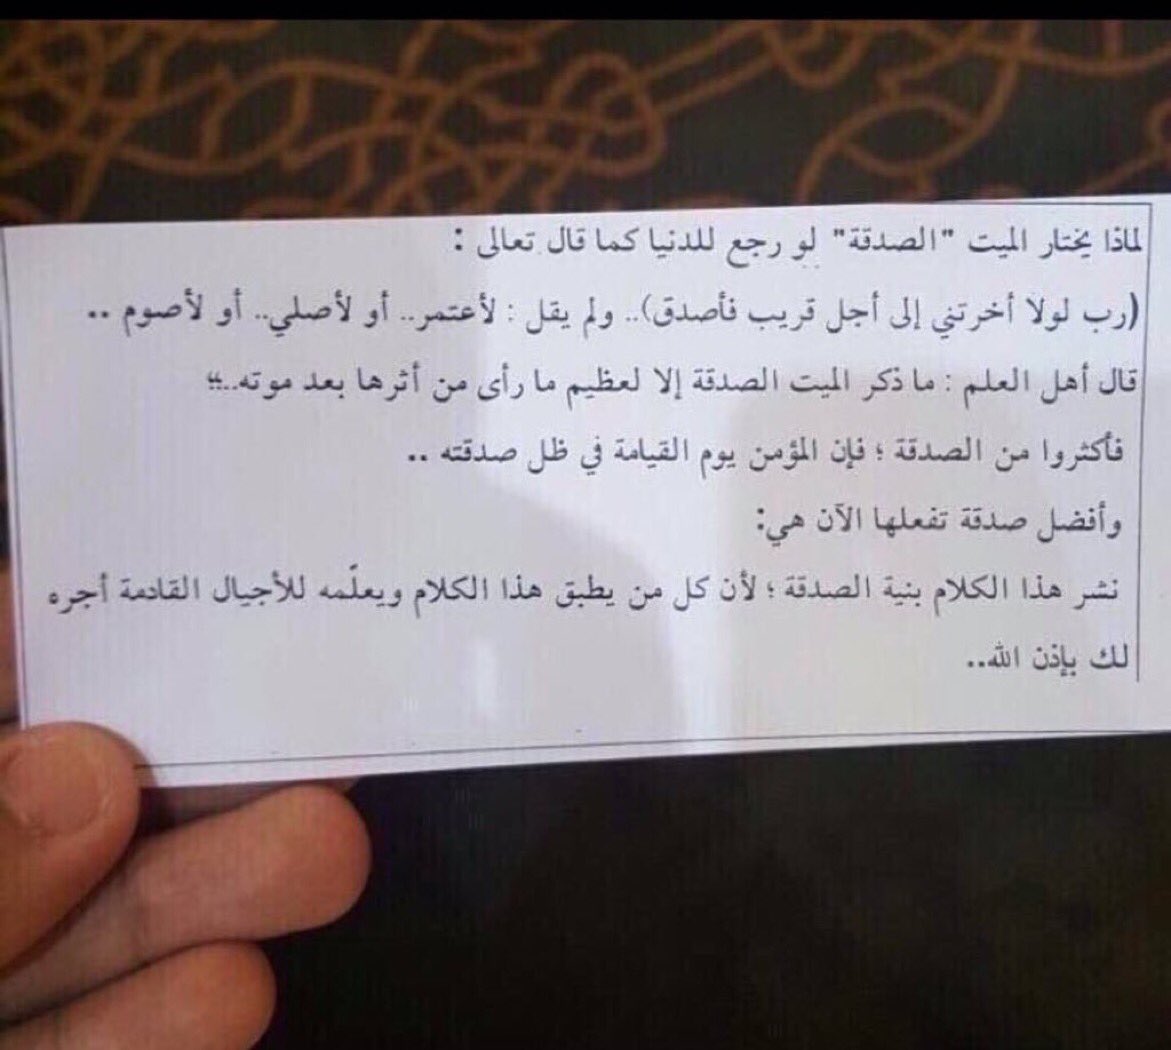 لماذا يختار الميت "الصدقة" لو رجع للدنيا كما قال تعالى :
(رب لولا أخرتني إلى أجل قريب فأصدق).. ولم يقل : لأعتمر.. أو لأصلي.. أو لأصوم ..
قال أهل العلم : ما ذكر الميت الصدقة إلا لعظيم ما رأى من أثرها بعد موته..“
فأكثروا من الصدقة ؛ فإن المؤمن يوم القيامة في ظل صدقته ..
وأفضل صدقة تفعلها الآن هي:
نشر هذا الكلام بنية الصدقة ؛ لأن كل من يطبق هذا الكلام ويعلّمه للأجيال القادمة أجره
لك بإذن الله..